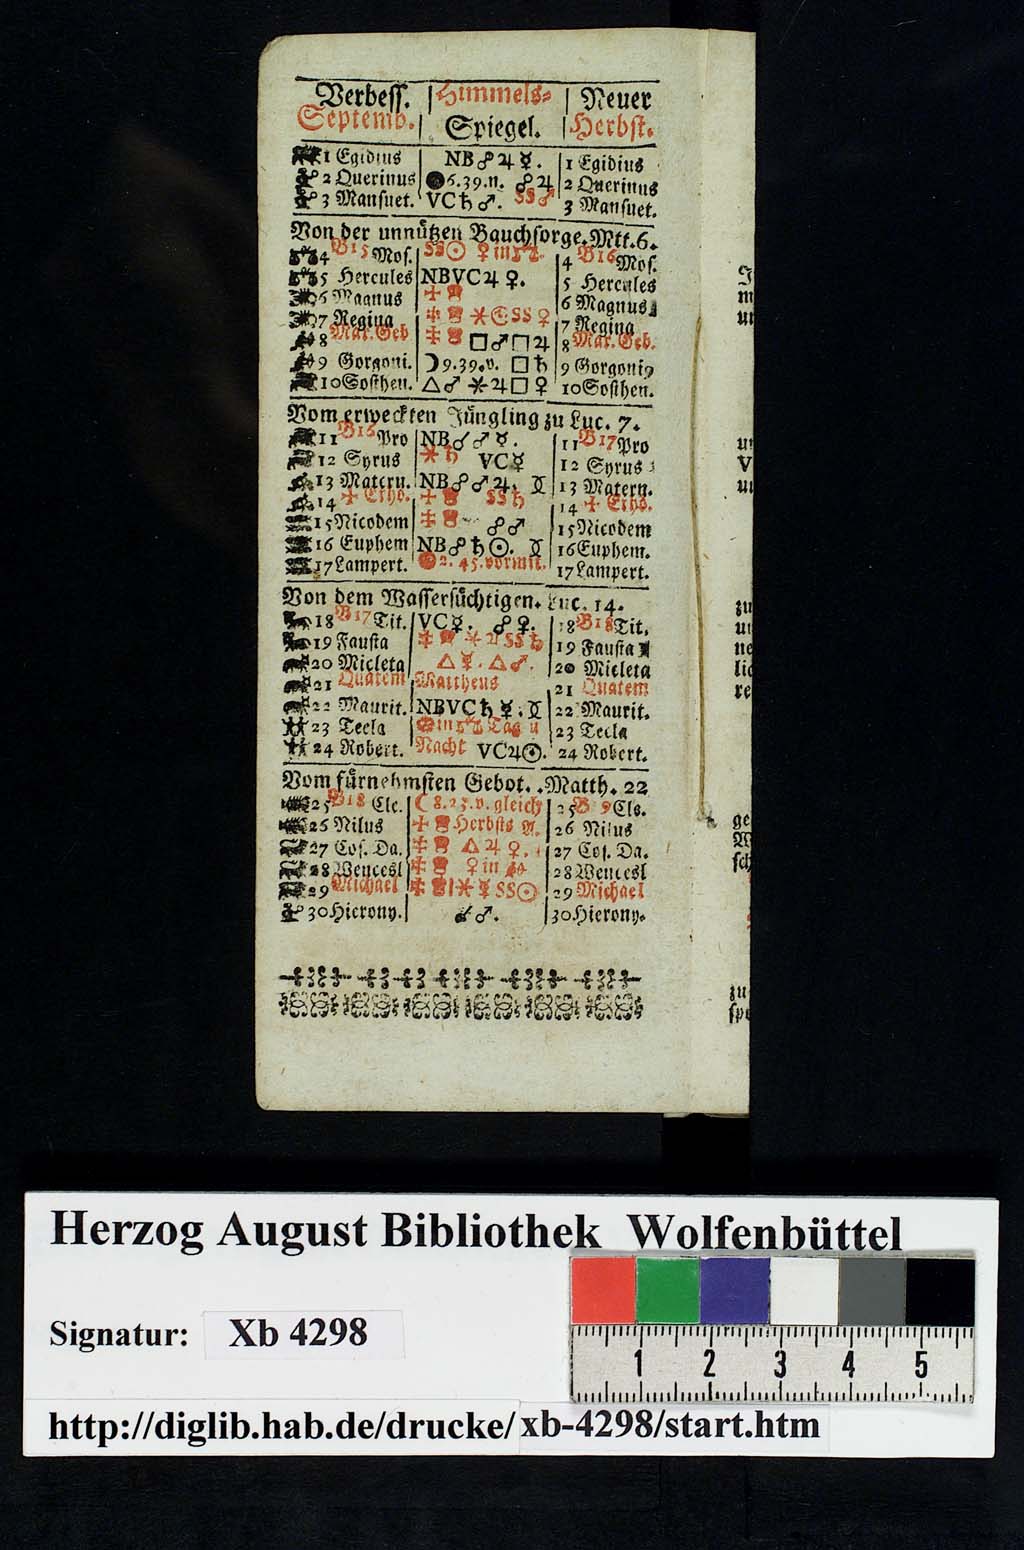 Verbess. | Himmels= | Neuer
Septemb. | Spiegel. | Herbst.
1 Egidius | NB☍♃☿. | 1 Egidius
2 Querinus | ●6.39.n. ☍♃ | 2 Querinus
3 Mansuet. | VC♄♂. SS♂ | 3 Mansuet.
Von der unnützen Bauchsorge. Mtt. 6.
4 B15 Mos. | SS☉ ♀ in | 4 B16 Mos.
5 Hercules | NBVC♃♀. | 5 Hercules
6 Magnus | 6 Magnus
7 Regina | SS♀ | 7 Regina
8 Mar. Geb | □♂□♃ | 8 Mar. Geb.
9 Gorgoni. | ☽9.39.v. □♄ | 9 Gorgoni9
10 Sosthen. | △♂ ⚹♃□♀ | 10 Sosthen.
Vom erweckten Jüngling zu Luc. 7.
11 B16 Pro | NB☌♂☿. | 11 B17 Pro
12 Syrus | ⚹♄ VC☿ | 12 Syrus
13 Matern. | NB☍♂♃. | 13 Matern.
14 ☩ Erhö. | SS♄ | 14 ☩ Erhö.
15 Nicodem | ☍♂ | 15 Nicodem
16 Euphem | NB☍♄☉. | 16 Euphem.
17 Lampert. | 2. 45. vormit. | 17 Lampert.
Von dem Wassersüchtigen. Luc. 14.
18 B17 Tit. | VC☿. ☍♀. | 18 B18 Tit.
19 Fausta | ⚹♃SS♄ | 19 Fausta
20 Micleta | △☿. △♂. | 20 Micleta
21 Quatem | Mattheus | 21 Quatem
22 Maurit. | NBVC♄☿. | 22 Maurit.
23 Tecla | in Tag u | 23 Tecla
24 Robert. | Nacht VC♃☉. | 24 Robert.
Vom fürnehmsten Gebot. Matth. 22
25 B18 Cle. | ☾8.23.v. gleich | 25 B19 Cle.
26 Nilus | Herbsts A. | 26 Nilus
27 Cos. Da. | △♃♀. | 27 Cos. Da.
28 Wencesl | ♀ in | 28 Wencesl
29 Michael | ⚹☿SS☉ | 29 Michael
30 Hierony. | ♂. | 30 Hierony.
Herzog August Bibliothek Wolfenbüttel
Signatur: Xb 4298
1 2 3 4 5
http://diglib.hab.de/drucke/xb-4298/start.htm